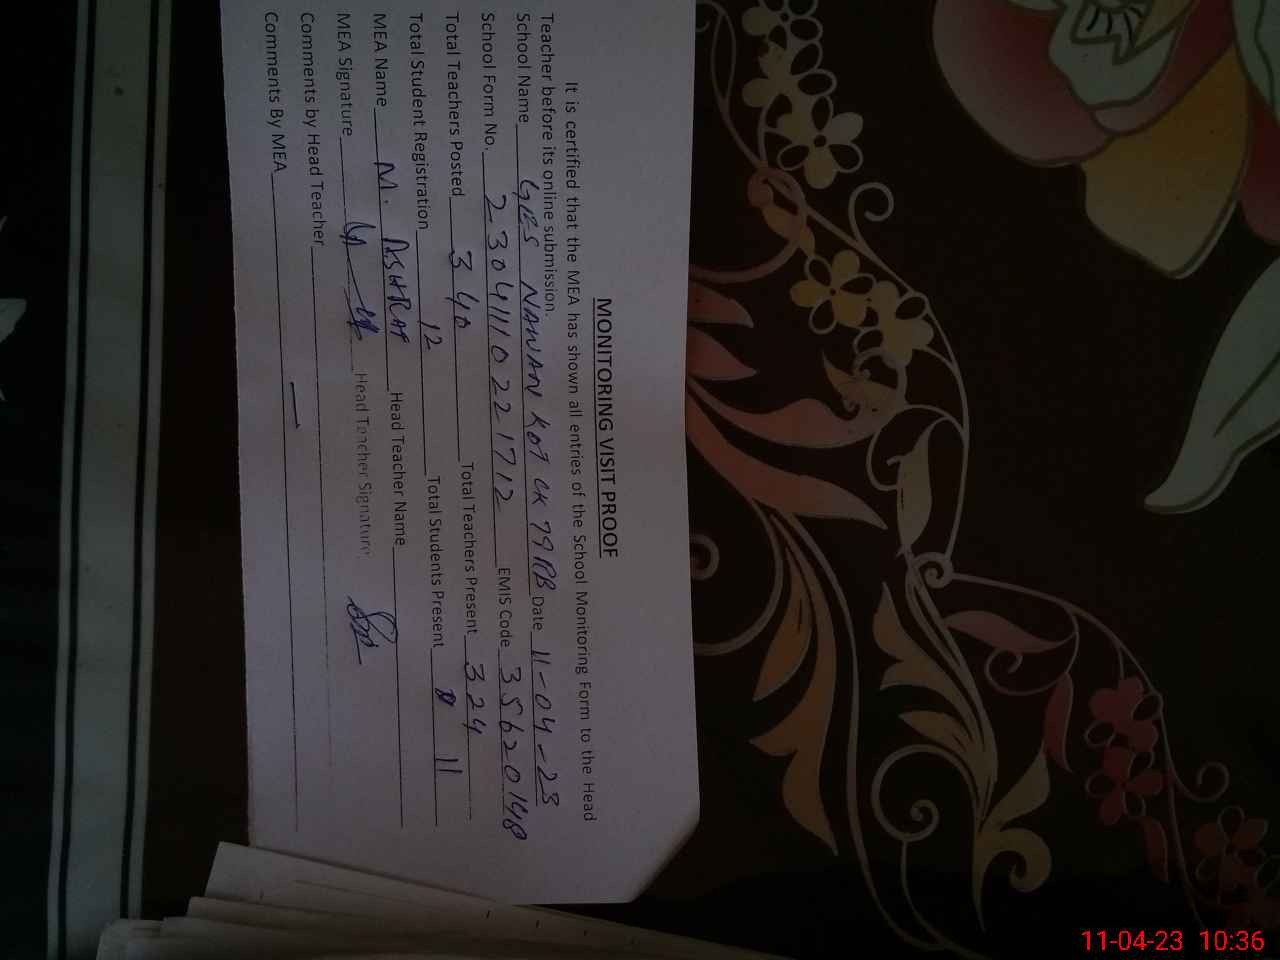 MONITORING VISIT PROOF
It is certified that the MEA has shown all entries of the School Monitoring Form to the Head
Teacher before its online submission.
School Name NAWAN KOT CK 79 RB Date 11-04-23
School Form No. 230411102217 12 EMIS Code 35620148
Total Teachers Posted 340 Total Teachers Present 324
Total Student Registration 12 Total Students Present 11
MEA Name M. ASHRAF Head Teacher Name
MEA Signature Head Teacher Signature
Comments by Head Teacher
Comments By MEA —
11-04-23 10:36